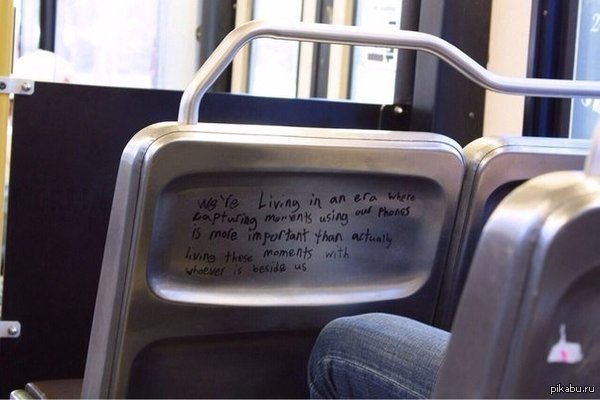 we're Living in an era where
capturing moments using our phones
is more important than actually
living these moments with
whoever is beside us
pikabu.ru